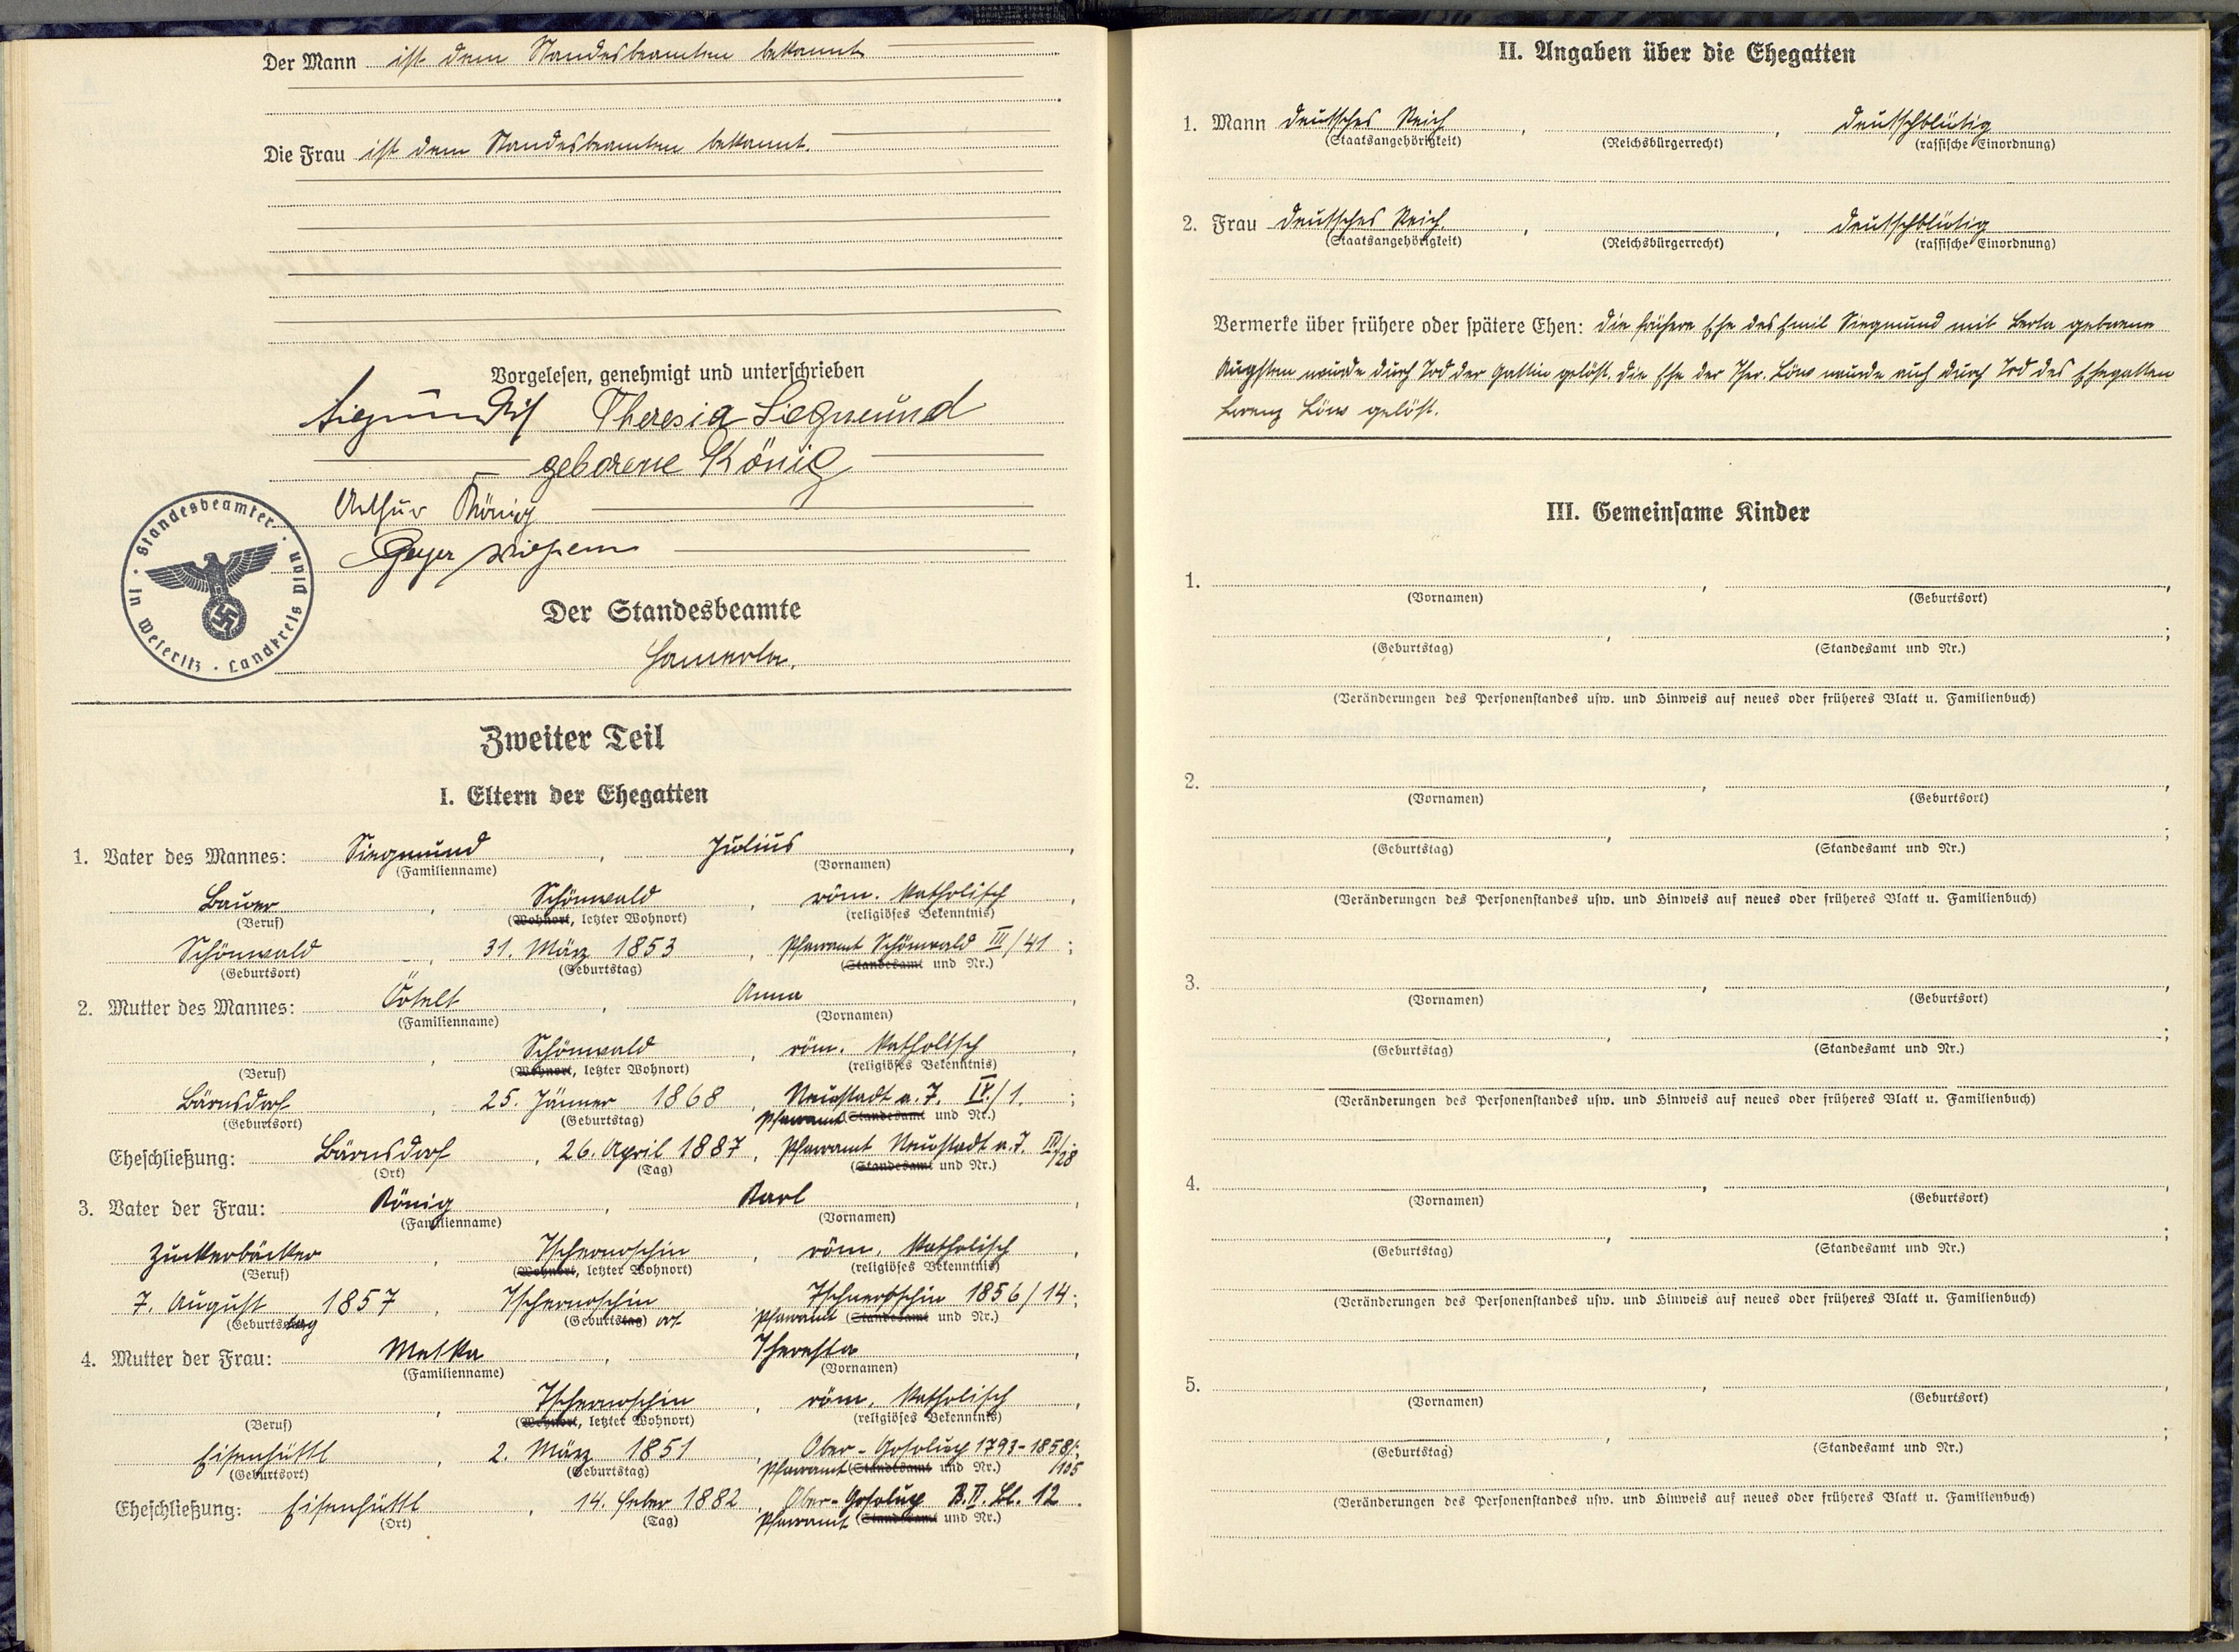 Der Mann ist dem Standesbeamten bekannt
Die Frau ist dem Standesbeamten bekannt.
Vorgelesen, genehmigt und unterschrieben
Theresia Siegmund
geborene König
Arthur König
Geyer
· Standesbeamter · in Weseritz · Landkreis Plan
Der Standesbeamte
Zweiter Teil
I. Eltern der Ehegatten
1. Vater des Mannes: Siegmund, Julius,
(Familienname) (Vornamen)
Bauer, Schönwald, röm. katholisch,
(Beruf) (Wohnort, letzter Wohnort) (religiöses Bekenntnis)
Schönwald, 31. März 1853, Pfarramt Schönwald III/41;
(Geburtsort) (Geburtstag) (Standesamt und Nr.)
2. Mutter des Mannes: Anna,
(Familienname) (Vornamen)
Schönwald, röm. katholisch,
(Beruf) (Wohnort, letzter Wohnort) (religiöses Bekenntnis)
Bärnsdorf, 25. Jänner 1868, Neustadt a. T. IV./1.;
(Geburtsort) (Geburtstag) Pfarramt (Standesamt und Nr.)
Eheschließung: Bärnsdorf, 26. April 1887, Pfarramt Neustadt a. T. III/28
(Ort) (Tag) (Standesamt und Nr.)
3. Vater der Frau: König, Karl,
(Familienname) (Vornamen)
Zuckerbäcker, Tschernoschin, röm. katholisch,
(Beruf) (Wohnort, letzter Wohnort) (religiöses Bekenntnis)
7. August 1857, Tschernoschin, Tschernoschin 1856/14;
(Geburtstag) (Geburtstag) ort Pfarramt (Standesamt und Nr.)
4. Mutter der Frau: Matka, Theresia,
(Familienname) (Vornamen)
Tschernoschin, röm. katholisch,
(Beruf) (Wohnort, letzter Wohnort) (religiöses Bekenntnis)
Eisenhüttl, 2. März 1851, Ober-Gosolup 1793-1858/105;
(Geburtsort) (Geburtstag) Pfarramt (Standesamt und Nr.)
Eheschließung: Eisenhüttl, 14. Feber 1882, Ober-Gosolup B.II. Bl. 12.
(Ort) (Tag) Pfarramt (Standesamt und Nr.)
II. Angaben über die Ehegatten
1. Mann Deutsches Reich, , deutschblütig
(Staatsangehörigkeit) (Reichsbürgerrecht) (rassische Einordnung)
2. Frau Deutsches Reich, , deutschblütig
(Staatsangehörigkeit) (Reichsbürgerrecht) (rassische Einordnung)
Vermerke über frühere oder spätere Ehen: Die frühere Ehe des Emil Siegmund mit Berta geborene
Augsten wurde durch Tod der Gattin gelöst. Die Ehe der Ther. Löw wurde auch durch Tod des Ehegatten
Lorenz Löw gelöst.
III. Gemeinsame Kinder
1. , ,
(Vornamen) (Geburtsort)
, ;
(Geburtstag) (Standesamt und Nr.)
(Veränderungen des Personenstandes usw. und Hinweis auf neues oder früheres Blatt u. Familienbuch)
2. , ,
(Vornamen) (Geburtsort)
, ;
(Geburtstag) (Standesamt und Nr.)
(Veränderungen des Personenstandes usw. und Hinweis auf neues oder früheres Blatt u. Familienbuch)
3. , ,
(Vornamen) (Geburtsort)
, ;
(Geburtstag) (Standesamt und Nr.)
(Veränderungen des Personenstandes usw. und Hinweis auf neues oder früheres Blatt u. Familienbuch)
4. , ,
(Vornamen) (Geburtsort)
, ;
(Geburtstag) (Standesamt und Nr.)
(Veränderungen des Personenstandes usw. und Hinweis auf neues oder früheres Blatt u. Familienbuch)
5. , ,
(Vornamen) (Geburtsort)
, ;
(Geburtstag) (Standesamt und Nr.)
(Veränderungen des Personenstandes usw. und Hinweis auf neues oder früheres Blatt u. Familienbuch)